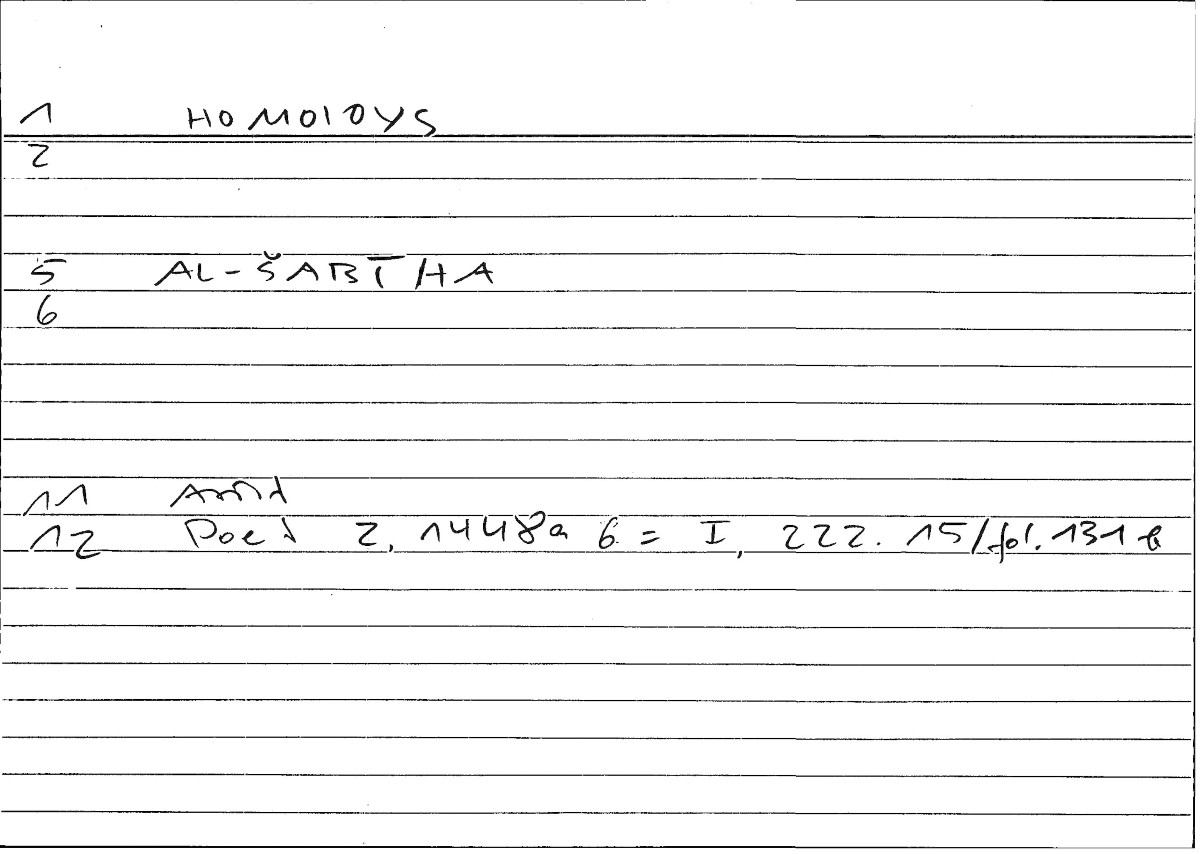 1 HOMOIOYS
2
5 AL-ŠABĪHA
6
11
12 Poet 2, 1448a 6 = I, 222. 15/fol. 131b